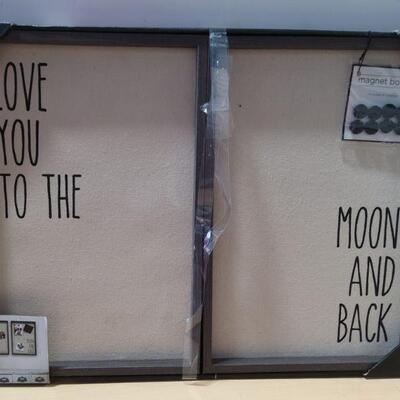 LOVE
YOU
TO THE
magnet bo
MOON
AND
BACK